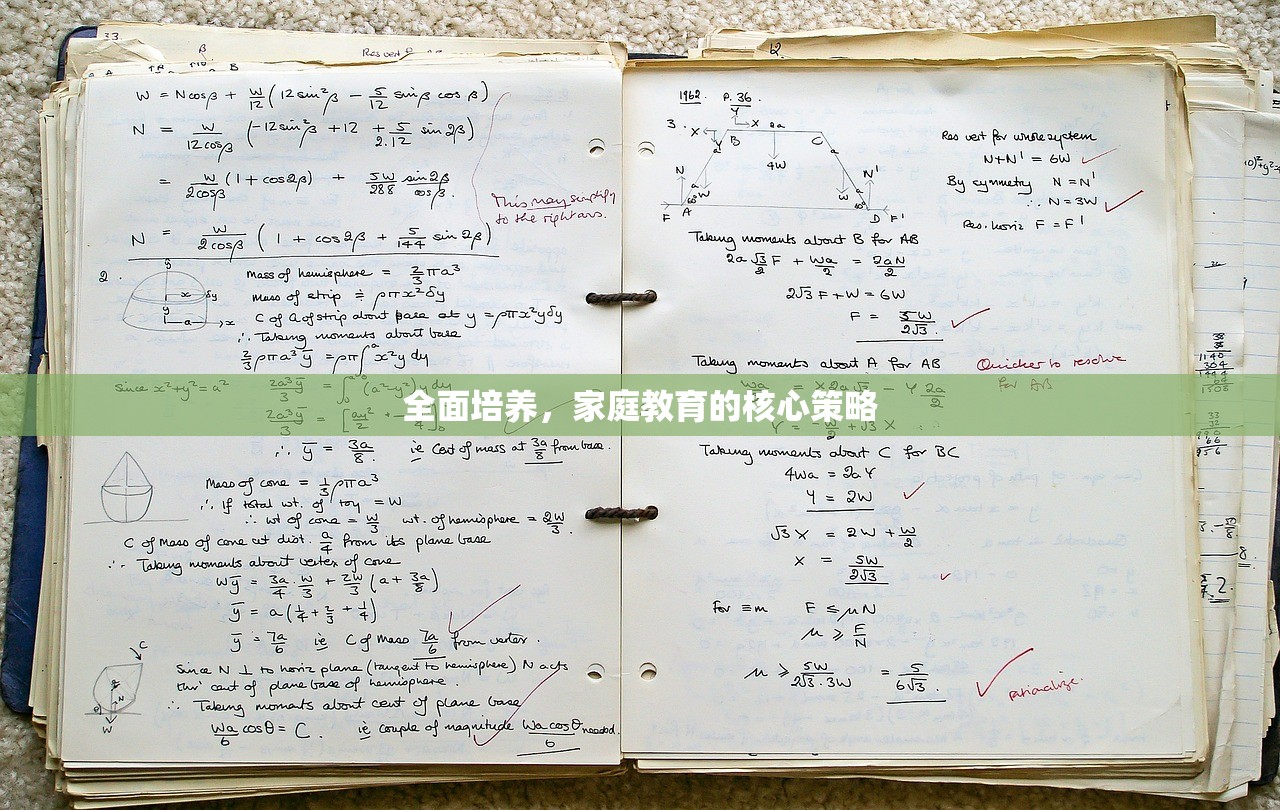 33.
β
Res vert
B
W = Ncosβ + W/12 (12 sin²β − 5/12 sinβ cosβ)
N = W/12cosβ (−12sin²β + 12 + 5/2.12 sin 2β)
= W/2cosβ (1 + cos2β) + 5W/288 sin2β/cosβ.
This may simplify
to the right ans.
N = W/2cosβ (1 + cos2β + 5/144 sin 2β)
2.
y
x
δy
y
a
x
Mass of hemisphere = 2/3 πa³
mass of strip ≑ ρπx²δy
C of G of strip about base at y = ρπx²yδy
∴ Taking moments about base
2/3 ρπa³ȳ = ρπ∫ᵃ₀ x²y dy
Since x²+y² = a² 2a³ȳ/3 = ∫ᵃ₀ (a²−y²) y dy
2a³ȳ/3 =
全面培养，家庭教育的核心策略
∴ ȳ = 3a/8. ie Cent of mass at 3a/8 from base.
Mass of cone = 1/3 ρπa³
∴ If total wt. of toy = W
∴ wt of cone = W/3 wt. of hemisphere = 2W/3.
C of Mass of cone at dist. a/4 from its plane base
∴ Taking moments about vertex of cone
Wȳ = 3a/4 · W/3 + 2W/3 (a + 3a/8)
ȳ = a(1/4 + 2/3 + 1/4)
ȳ = 7a/6 ie C of Mass 7a/6 from vertex.
C
N
θ
W
Since N ⊥ to horiz plane (tangent to hemisphere) N acts
thro' cent of plane base of hemisphere.
∴ Taking moments about cent of plane base
Wa/6 cosθ = C. ie couple of magnitude Wa cosθ/6 needed.
1962. P. 36.
3.
X
Y
X
2a
B
C
4W
N
N'
W
W
60°
60°
F
A
D
F'
Res vert for whole system
N+N' = 6W
By symmetry N = N'
∴ N = 3W
Res. horiz F = F'
Taking moments about B for AB
2a √3/2 F + Wa/2 = 2aN/2
2√3 F + W = 6W
F = 5W/2√3.
Taking moments about A for AB
Quicker to resolve
for AB
Wa/2 = X 2a √3/2 − Y 2a/2
Taking moments about C for BC
4Wa = 2aY
Y = 2W
√3 X = 2W + W/2
X = 5W/2√3
For ≡m F ≤ μN
μ ≥ F/N
μ ≥ 5W/2√3.3W = 5/6√3.
rationalize.
38
1140
304
1444
64
1508
33
32
66
956
8.
2.